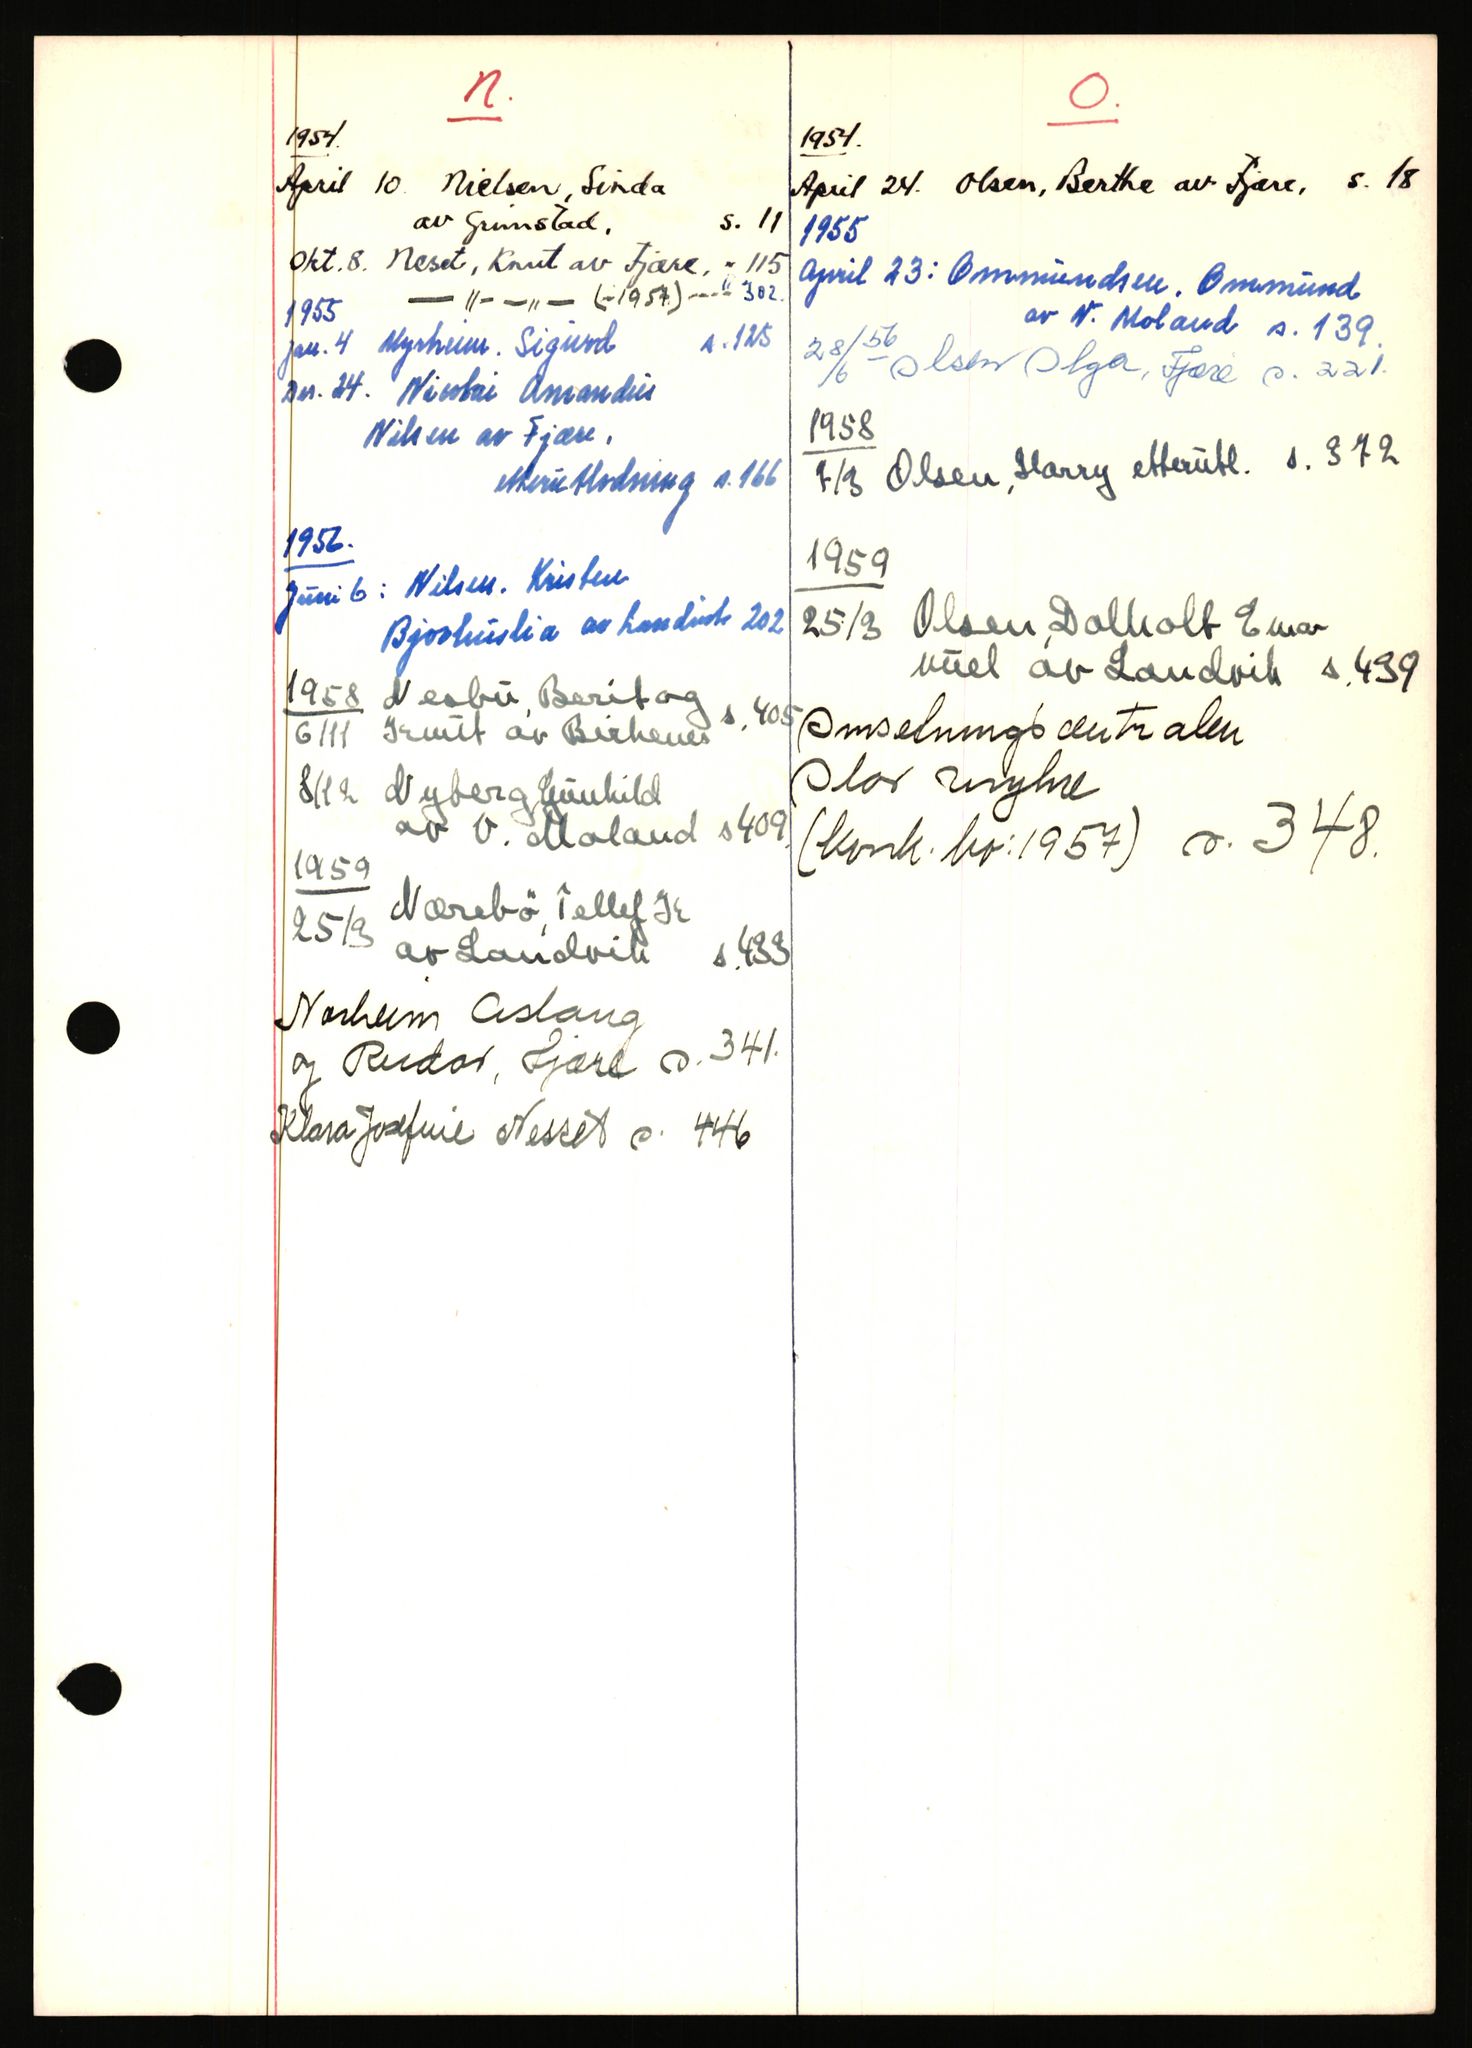 N.
1954.
April 10. Nielsen, Linda
av Grimstad. s. 11
Okt. 8. Neset, Knut av Fjære. " 115
— " — — " — (-1957) — " 302.
1955
Jan. 4 Myrheim. Sigurd s. 125
Des. 24. Nicolai Amandus
Nilsen av Fjære.
etterutlodning s. 166
1956.
Juni 6: Nilsen. Kristen
av Landvik 202
1958 Nesbu, Berit og
6/11 Knut av Birkenes s. 405
8/12 Nyberg, Gunhild
av V. Moland s 409.
1959
25/3 Nærebö, Tellef K
av Landvik s. 433
Norheim Aslaug
og Reidar, Fjære s. 341.
Klara Josefine Nesset s. 446
O.
1954.
April 24. Olsen, Berthe av Fjære. s. 18
1955
April 23: Ommundsen. Ommund
av V. Moland s. 139.
28/6 56 – Olsen Olga, Fjære s. 221.
1958
7/3 Olsen, Harry etterutl. s. 372
1959
25/3 Olsen, Dalholt Ema
nuel av Landvik s. 439
Omsetningscentralen
(konk. bo: 1957) s. 348.